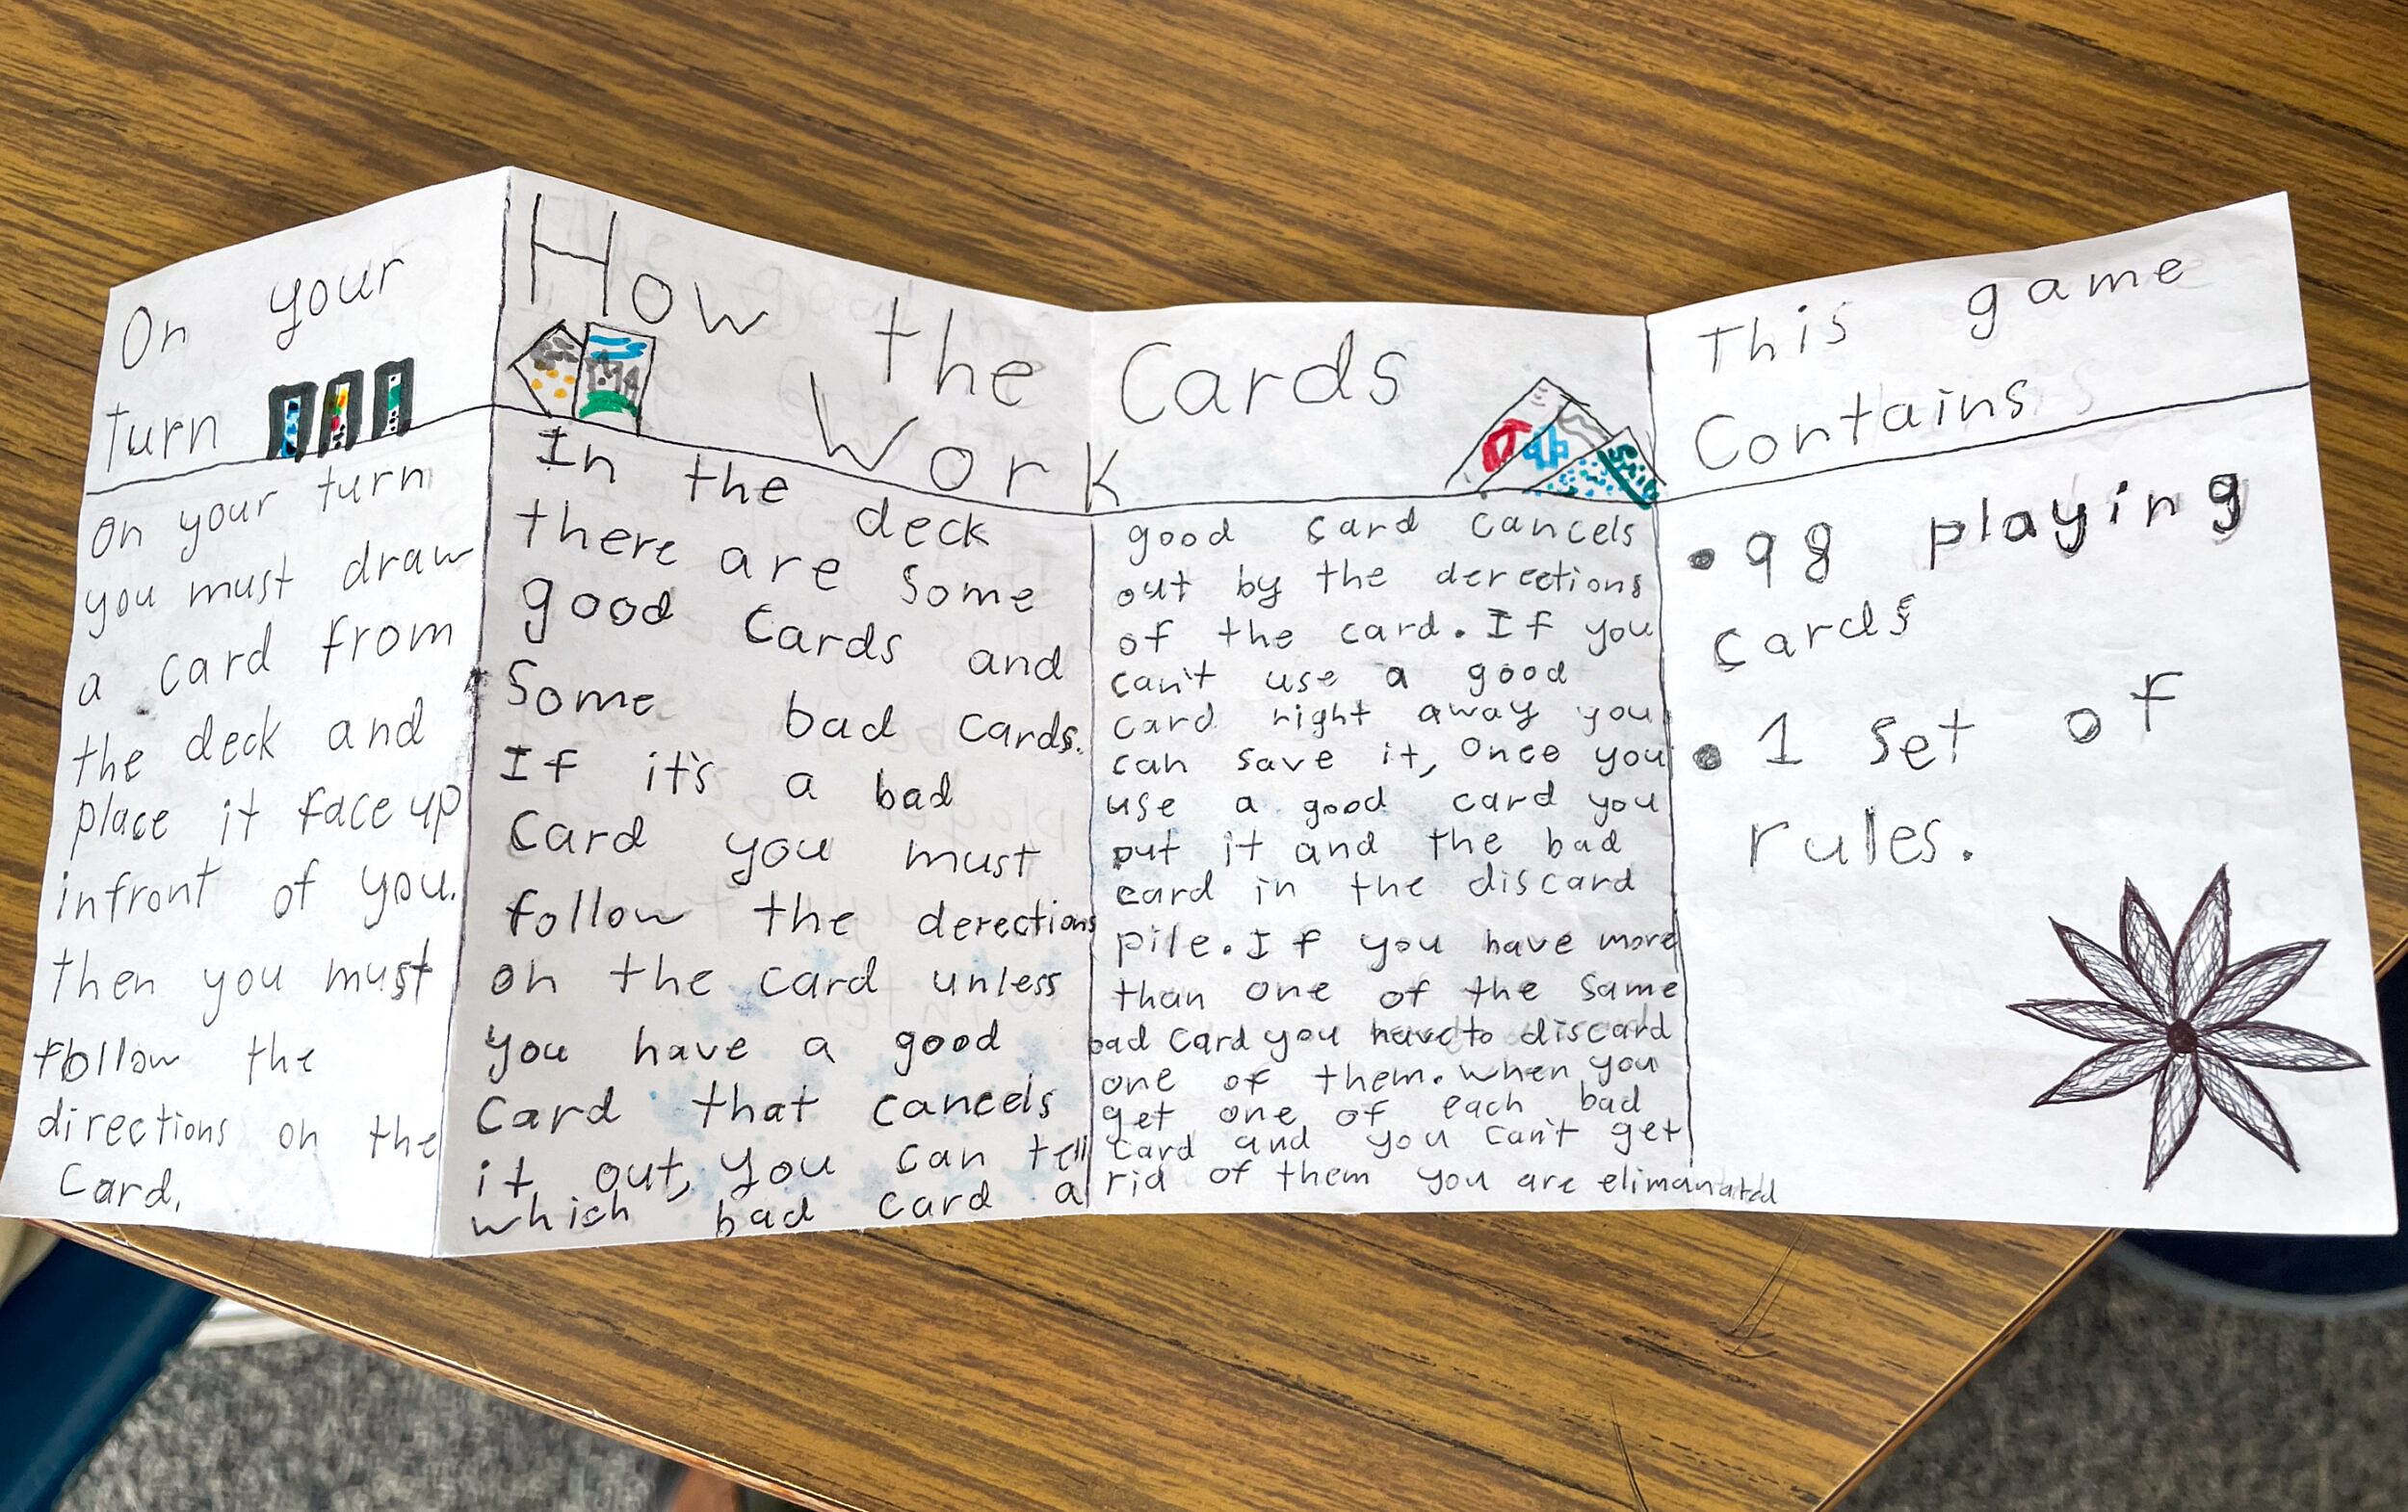 On your
turn
On your turn
you must draw
a card from
the deck and
place it face up
infront of you.
then you must
follow the
directions on the
Card.
How the Cards
Work
In the deck
there are some
good Cards and
Some bad cards.
If it's a bad
Card you must
follow the derections
on the card unless
you have a good
Card that cancels
it out, You can tell
which bad card a
good card cancels
out by the derections
of the card. If you
can't use a good
card right away you
can save it, Once you
use a good card you
put it and the bad
card in the discard
pile. If you have more
than one of the same
bad card you have to discard
one of them. When you
get one of each bad
card and you can't get
rid of them you are elimanated
This game
Contains
• 98 playing
cards
• 1 set of
rules.